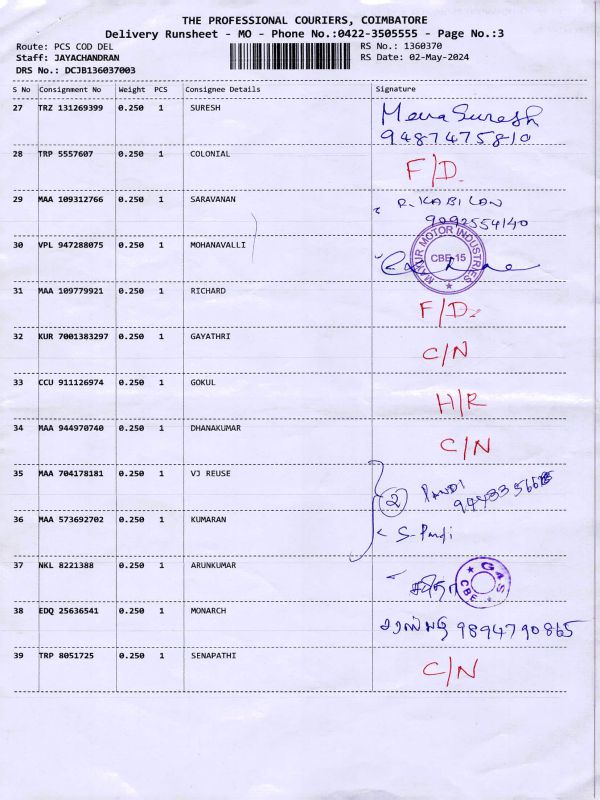 THE PROFESSIONAL COURIERS, COIMBATORE
Delivery Runsheet - MO - Phone No.:0422-3505555 - Page No.:3
Route: PCS COD DEL RS No.: 1360370
Staff: JAYACHANDRAN RS Date: 02-May-2024
DRS No.: DCJB136037003
S No Consignment No Weight PCS Consignee Details Signature
27 TRZ 131269399 0.250 1 SURESH Meera Suresh
9487475810
28 TRP 5557607 0.250 1 COLONIAL F/D.
29 MAA 109312766 0.250 1 SARAVANAN R. KABILAN
9092554140
30 VPL 947288075 0.250 1 MOHANAVALLI
MAYUR MOTOR INDUSTRIES
CBE-15
31 MAA 109779921 0.250 1 RICHARD F/D.
32 KUR 7001383297 0.250 1 GAYATHRI C/N
33 CCU 911126974 0.250 1 GOKUL H/R
34 MAA 944970740 0.250 1 DHANAKUMAR C/N
35 MAA 704178181 0.250 1 VJ REUSE 2 PANDI
36 MAA 573692702 0.250 1 KUMARAN S-Pandi
37 NKL 8221388 0.250 1 ARUNKUMAR
GAS CBE
38 EDQ 25636541 0.250 1 MONARCH 9894790865
39 TRP 8051725 0.250 1 SENAPATHI C/N